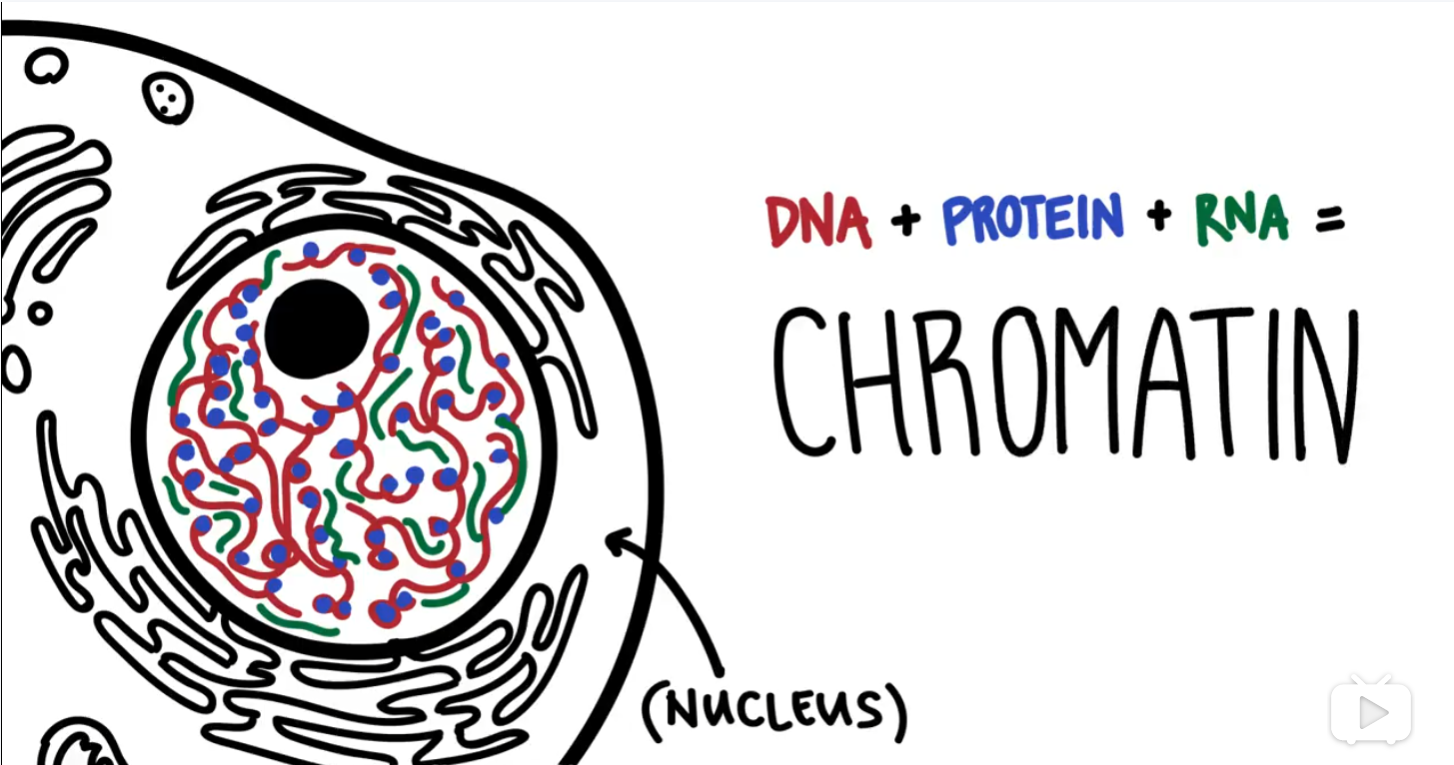 DNA + PROTEIN + RNA =
CHROMATIN
(NUCLEUS)